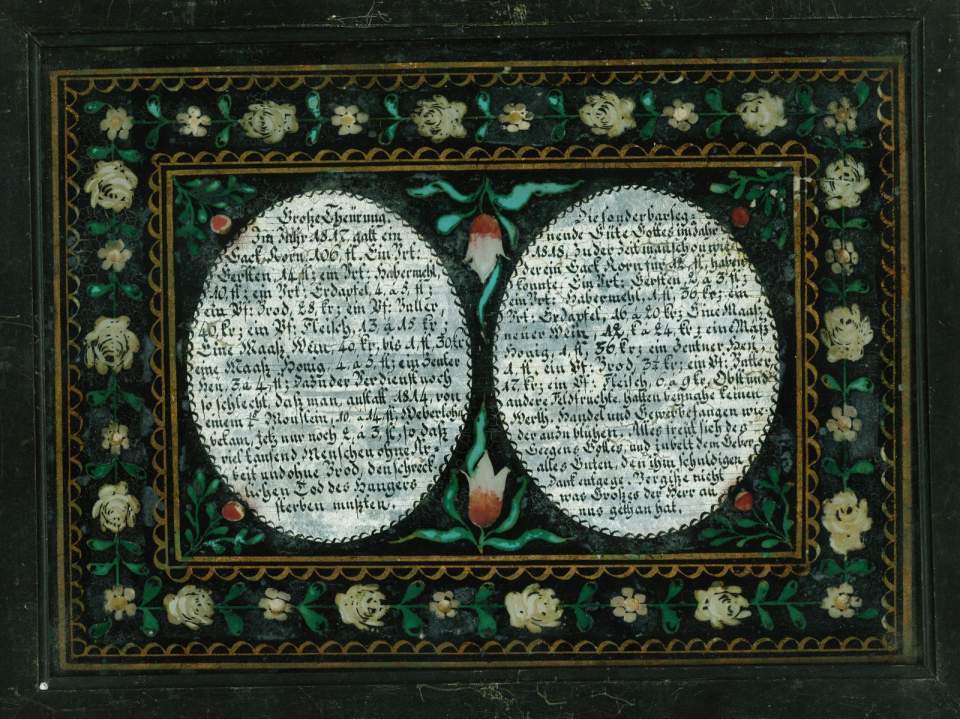 Große Theürung.
Im Jahr 1817, galt ein
Sack, Korn, 106, fl. Ein Vrt:
Gersten, 14, fl; ein Vrt: Habermehl,
10, fl; ein Vrt; Erdäpfel, 4, a 5, fl;
ein Pf: Brod, 28, kr; ein Pf: Butter,
40 kr; ein Pf; Fleisch, 13 à 15 kr;
Eine Maaß Wein, 40 kr, bis 1, fl. 30 kr
eine Maaß Honig, 4, a 5, fl; ein Zenter
Heu, 3 a 4, fl; Da nun der Verdienst noch
so schlecht, daß man, anstatt 1814, von
einem Moußlein, 10, a 14, fl, Weberlohn
bekam, jetz nur noch 2, a 3, fl, so daß
viel tausend Menschen ohne, Ar-
beit und ohne Brod, den schreck-
lichen Tod des Hungers
sterben mußten.
Die sonderbar seg-
nende Güte Gottes, im Jahr
1818, In der Zeit man schon wie-
der ein Sack Korn für fl, haben
konnte; Ein Vrt. Gersten, 2 a 3, fl;
ein Vrt: Habermehl, 1, fl, 36, kr; ein
Vrt; Erdäpfel, 16 a 20, kr; Eine Maaß
neuer Wein, 12, k a 24, kr; eine Maß
Honig, 1, fl; 36 kr; ein Zentner Heu,
1, fl, ein Pf: Brod, kr; ein Pf: Butter
17, kr; ein Pf: Fleisch, kr; Obst und
andere Feldfrüchte, hatten beynahe keinen
Werth, Handel und Gewerb fangen wie-
der an zu blühen, Alles freut sich des
Seegens Gottes, und bringt dem Geber
alles Guten, den ihm schuldigen
Dank entgege. Vergiße nicht
was Großes der Herr an
uns gethan hat.